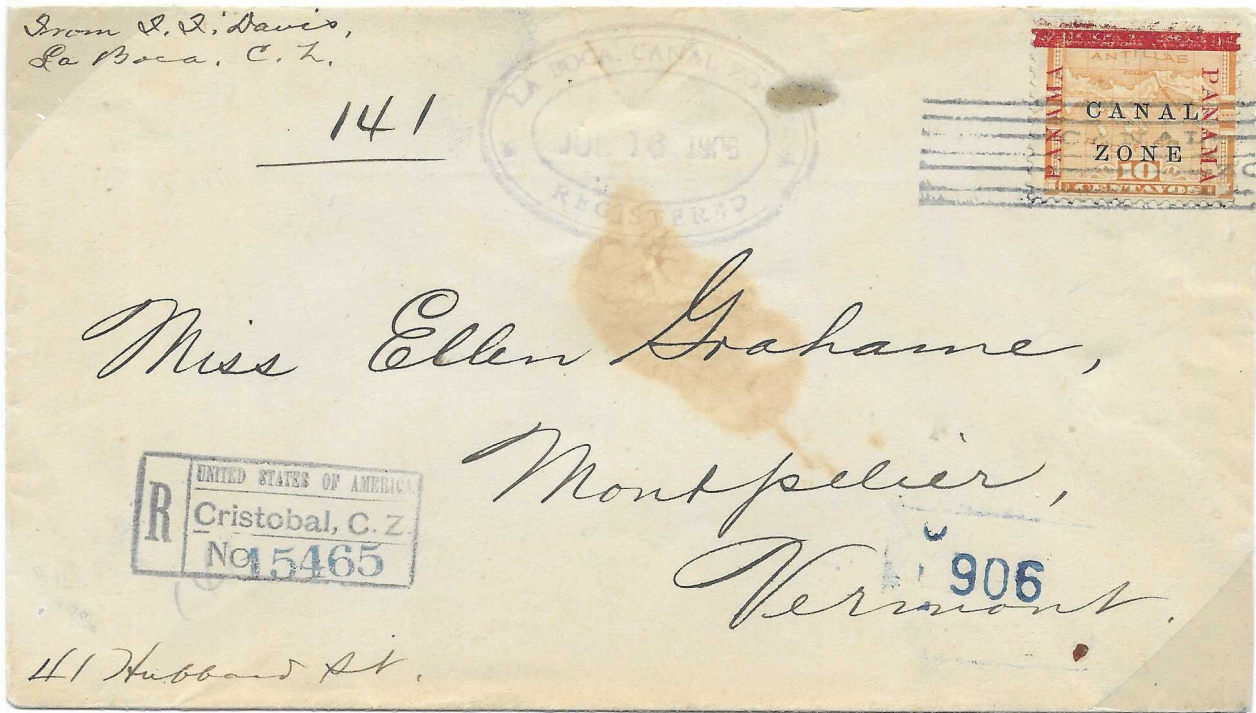 From I. I. Davis,
La Boca, C. Z.
141
LA BOCA, CANAL ZONE
JUL 16 1906
REGISTERED
ANTILLAS
COLON
PANAMA
PANAMA
CANAL
ZONE
10
CENTAVOS
Miss Ellen Grahame,
Montpelier,
Vermont.
R
UNITED STATES OF AMERICA
Cristobal, C. Z.
No 15465
906
41 Hubbard St.